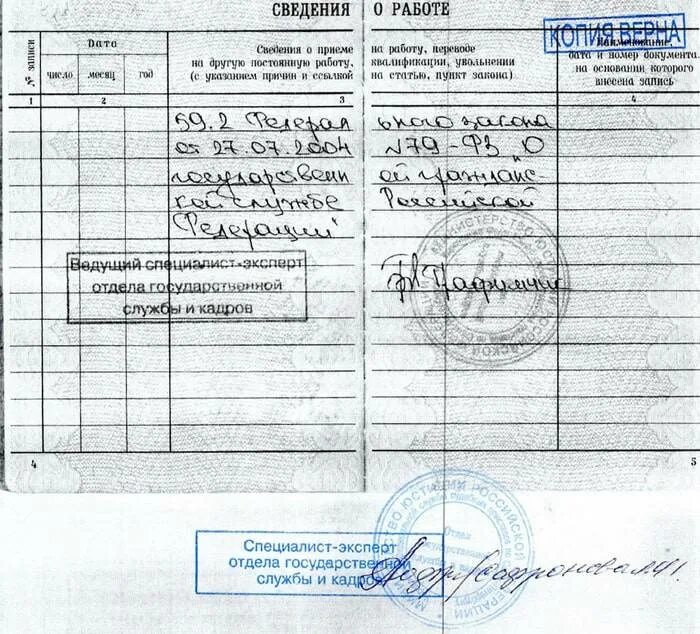 СВЕДЕНИЯ О РАБОТЕ
КОПИЯ ВЕРНА
№ записи
Дата
число месяц год
Сведения о приеме на работу, переводе
на другую постоянную работу, квалификации, увольнении
(с указанием причин и ссылкой на статью, пункт закона)
Наименование,
дата и номер документа,
на основании которого
внесена запись
1 2 3 4
59.2 Федерального закона
от 27.07.2004 N79-ФЗ "О
государственной граждан-
ской службе Российской
Федерации"
Ведущий специалист-эксперт
отдела государственной
службы и кадров
4 5
Специалист-эксперт
отдела государственной
службы и кадров